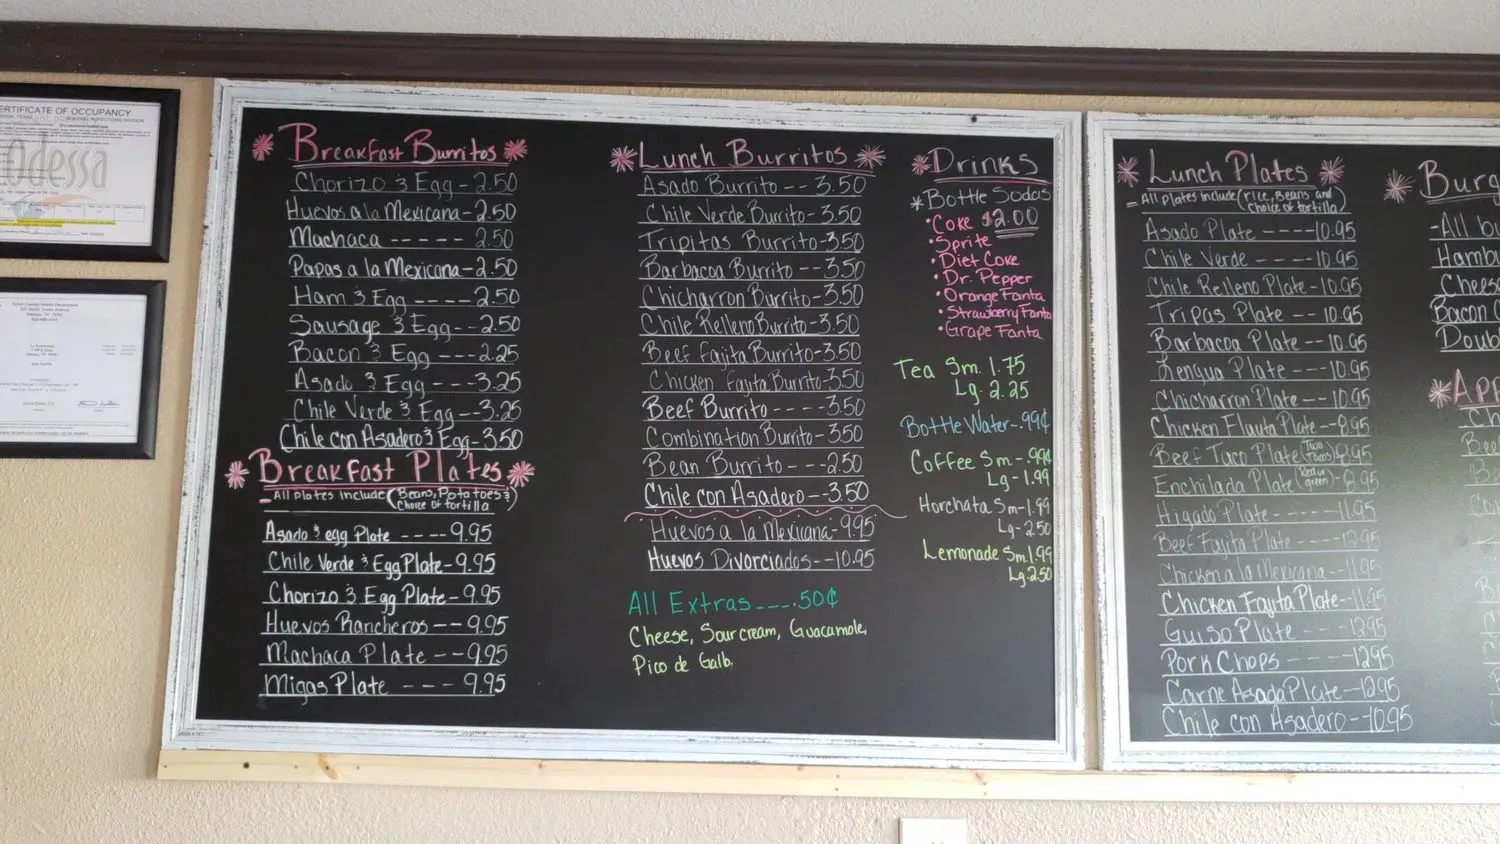 ERTIFICATE OF OCCUPANCY
Odessa
Breakfast Burritos
Chorizo & Egg - 2.50
Huevos a la Mexicana - 2.50
Machaca ----- 2.50
Papas a la Mexicana - 2.50
Ham & Egg ---- 2.50
Sausage & Egg -- 2.50
Bacon & Egg --- 2.25
Asado & Egg --- 3.25
Chile Verde & Egg -- 3.25
Chile con Asadero & Egg - 3.50
Breakfast Plates
- All plates include (Beans, Potatoes &
choice of tortilla)
Asado & egg Plate ---- 9.95
Chile Verde & Egg Plate - 9.95
Chorizo & Egg Plate - 9.95
Huevos Rancheros -- 9.95
Machaca Plate -- 9.95
Migas Plate --- 9.95
Lunch Burritos
Asado Burrito -- 3.50
Chile Verde Burrito - 3.50
Tripitas Burrito - 3.50
Barbacoa Burrito -- 3.50
Chicharron Burrito - 3.50
Chile Relleno Burrito - 3.50
Beef Fajita Burrito - 3.50
Chicken Fajita Burrito - 3.50
Beef Burrito ---- 3.50
Combination Burrito - 3.50
Bean Burrito --- 2.50
Chile con Asadero -- 3.50
Huevos a la Mexicana - 9.95
Huevos Divorciados -- 10.95
All Extras ---- .50¢
Cheese, Sour cream, Guacamole,
Pico de Gallo.
Drinks
* Bottle Sodas
• Coke $2.00
• Sprite
• Diet Coke
• Dr. Pepper
• Orange Fanta
• Strawberry Fanta
• Grape Fanta
Tea Sm. 1.75
Lg. 2.25
Bottle Water - .99¢
Coffee Sm - .99¢
Lg - 1.99
Horchata Sm - 1.99
Lg - 2.50
Lemonade Sm. 1.99
Lg. 2.50
Lunch Plates
- All plates include (rice, Beans and
choice of tortilla)
Asado Plate ---- 10.95
Chile Verde --- 10.95
Chile Relleno Plate - 10.95
Tripas Plate -- 10.95
Barbacoa Plate -- 10.95
Lengua Plate --- 10.95
Chicharron Plate - 10.95
Chicken Flauta Plate -- 8.95
Beef Taco Plate (Two Tacos) 8.95
Enchilada Plate (Red or green) - 8.95
Higado Plate ---- 11.95
Beef Fajita Plate ---- 12.95
Chicken a la Mexicana -- 11.95
Chicken Fajita Plate -- 11.95
Guiso Plate --- 12.95
Pork Chops ---- 12.95
Carne Asada Plate -- 12.95
Chile con Asadero -- 10.95
Burg
- All bu
Hambu
Cheese
Bacon C
Doub
App
Ch
Bee